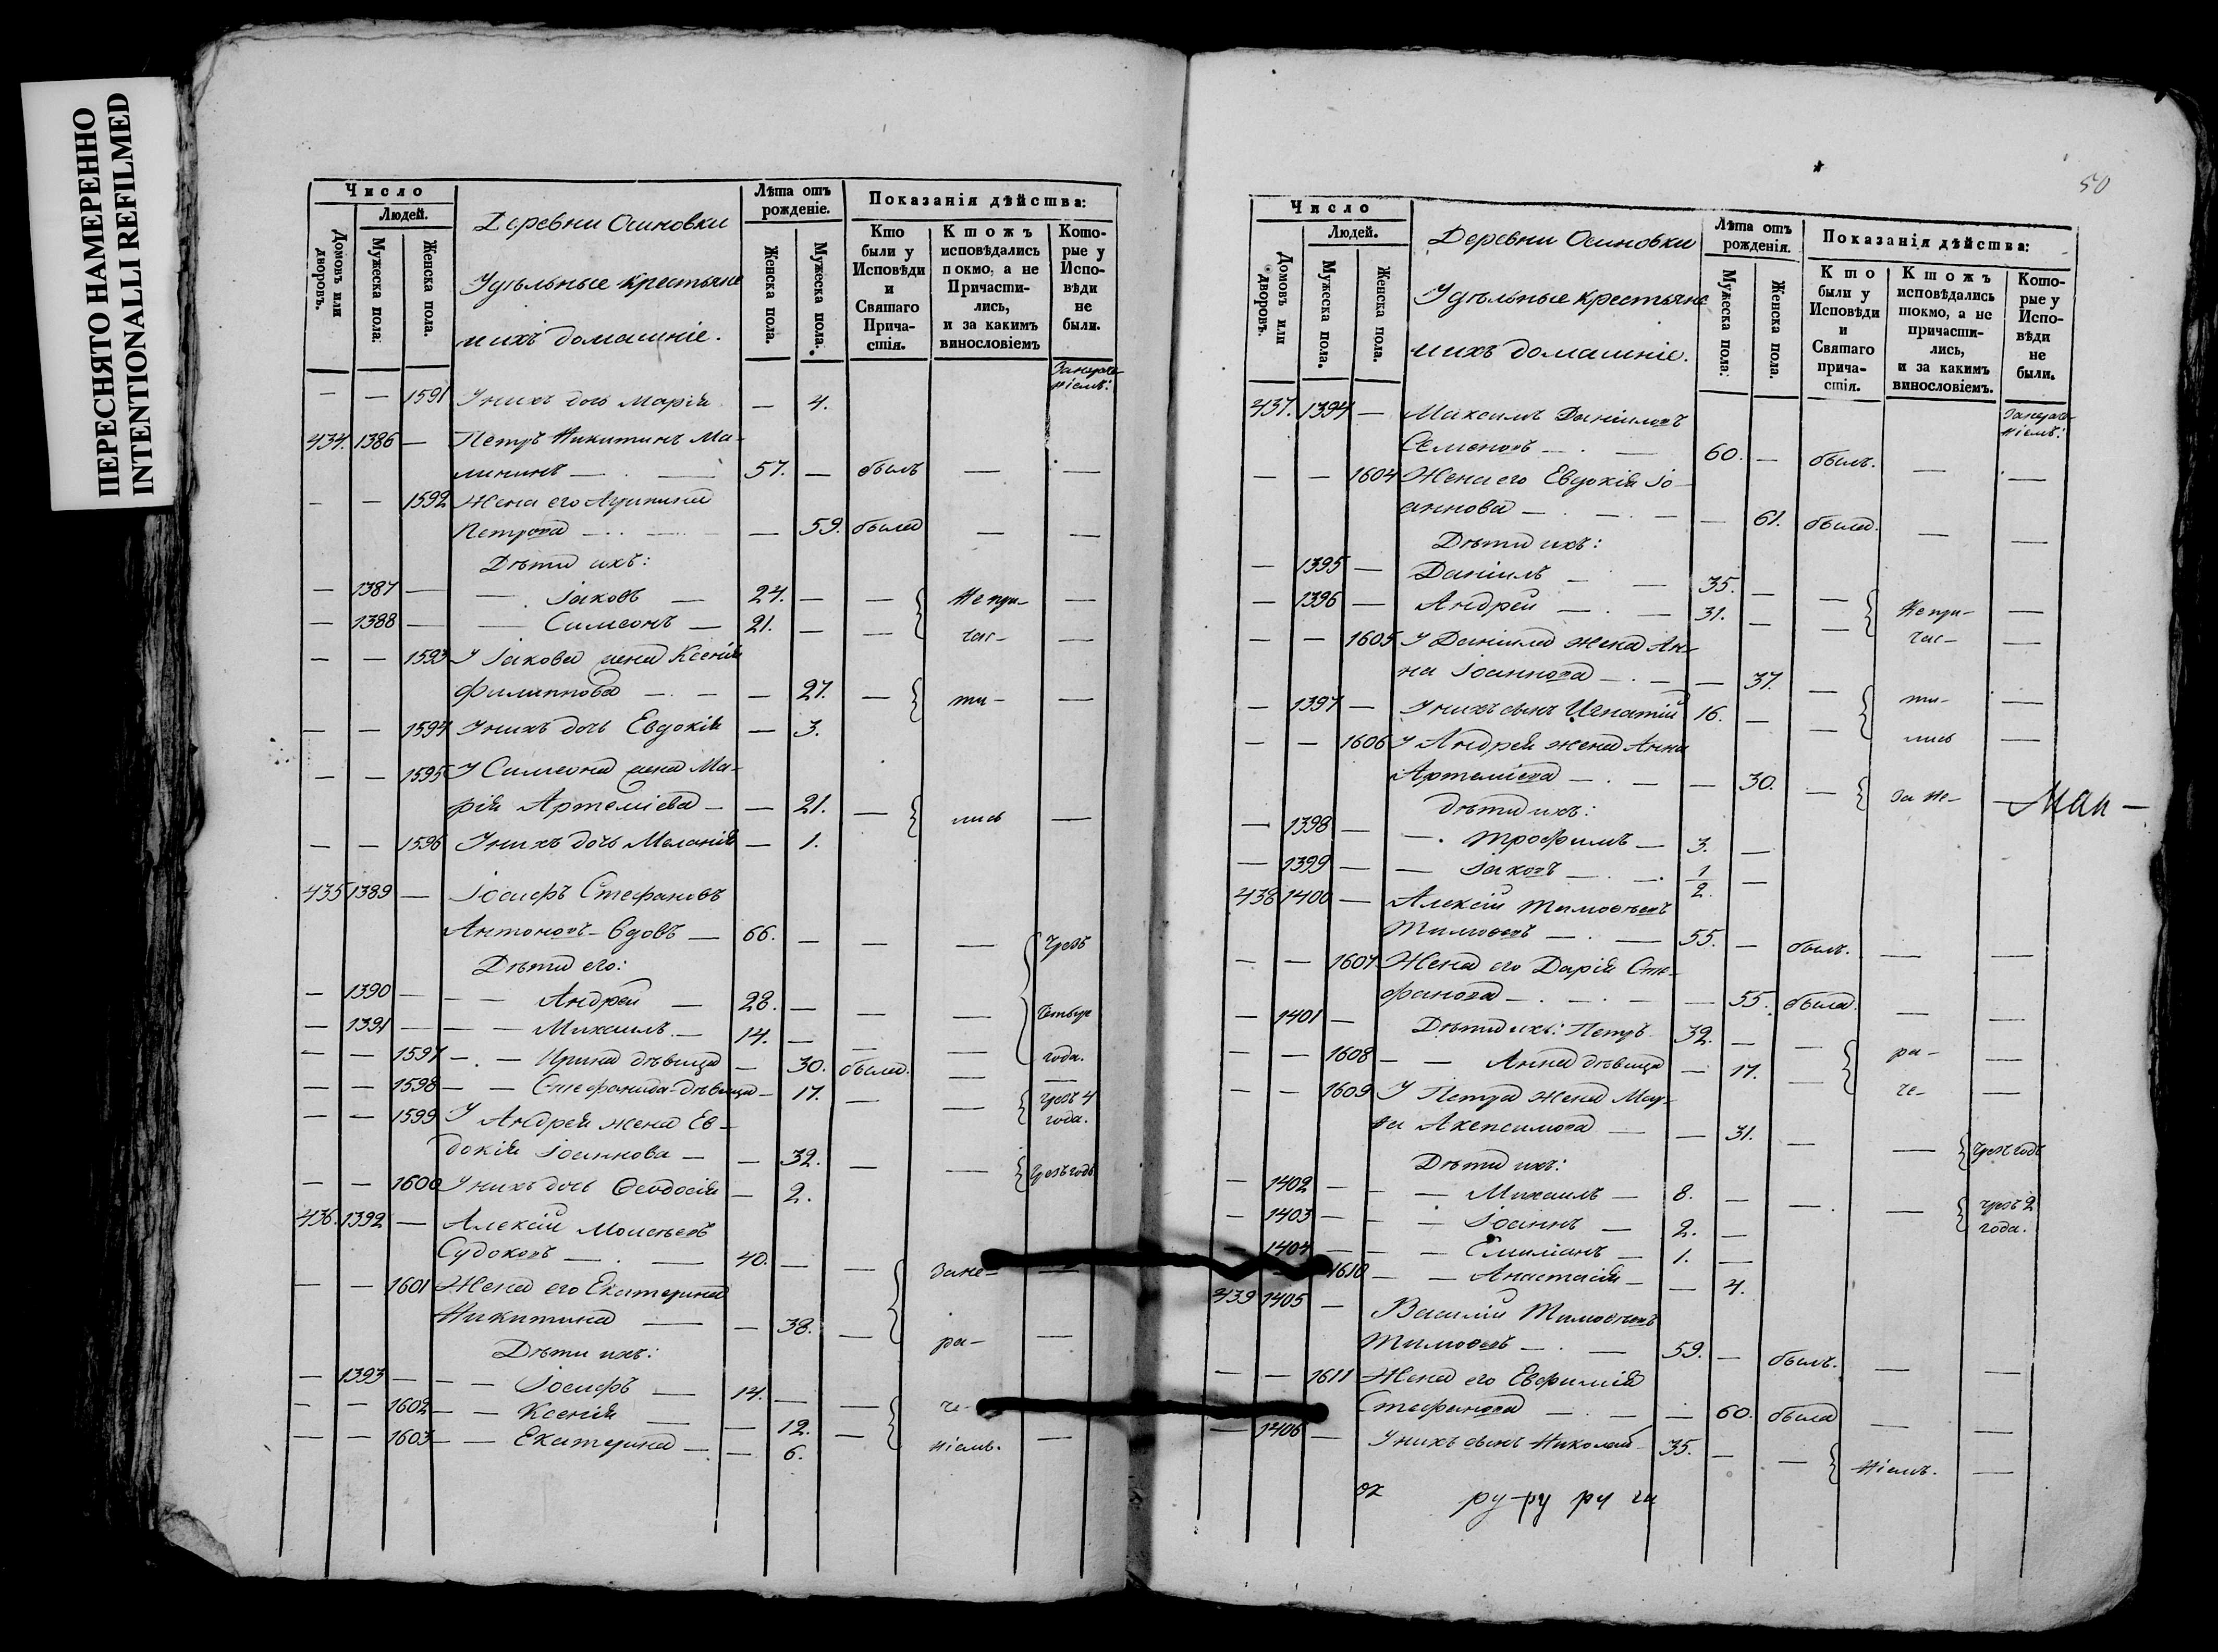 ПЕРЕСНЯТО НАМЕРЕННО
INTENTIONALLI REFILMED
Число
Людей.
Домовъ или дворовъ.
Мужеска пола.
Женска пола.
Деревни Осиновки
Удѣльные крестьяне
и ихъ домашніе.
Лѣта отъ рожденіе.
Женска пола.
Мужеска пола.
Показанія дѣйства:
Кто были у Исповѣди и Святаго Прича-стія.
Ктожъ исповѣдались покмо, а не Причасти-лись, и за какимъ винословіемъ
Кото-рые у Испо-вѣди не были.
— — 1591 У нихъ дочь Марія — 4.
434. 1386 — Петръ Никитинъ Ма-
лининъ — 57. — былъ — —
— — 1592 Жена его Агрипина
Петрова — — 59. была — —
Дѣти ихъ:
— 1387 — — Іаковъ — 24. — — Не при- —
— 1388 — — Симеонъ — 21. — — час- —
— — 1593 У Іакова жена Ксенія
Филиппова — — 27. — ти- —
— — 1594 У нихъ дочь Евдокія — 3.
— — 1595 У Симеона жена Ма-
рія Артеміева — — 21. — лись —
— — 1596 У нихъ дочь Меланія — 1.
435 1389 — Іосифъ Стефановъ
Антоновъ - вдовъ — 66. — — — Чрезъ
Дѣти его:
— 1390 — — — Андрей — 28. — — — четыре
— 1391 — — — Михаилъ — 14. — — —
— — 1597 — — Ирина дѣвица — 30. была. — года.
— — 1598 — — Стефанида - дѣвица — 17. — — чрезъ 4
года.
— — 1599 У Андрея жена Ев-
докія Іоаннова — — 32. — — Чрезъ годъ
— — 1600 У нихъ дочь Феодосія — 2.
436. 1392 — Алексій Моисѣевъ
Судоковъ — 40. — — Зане- —
— — 1601 Жена его Екатерина
Никитина — — 38. — ра- —
Дѣти ихъ:
— 1393 — — — Іосифъ — 14. — — че-
— — 1602 — — Ксенія — — 12. —
— — 1603 — — Екатерина — — 6. ніемъ. —
50
Число
Людей.
Домовъ или дворовъ.
Мужеска пола.
Женска пола.
Деревни Осиновки
Удѣльные крестьяне
и ихъ домашніе.
Лѣта отъ рожденія.
Мужеска пола:
Женска пола.
Показанія дѣйства:
Кто были у Исповѣди и Святаго прича-стія.
Ктожъ исповѣдались токмо, а не причасти-лись, и за какимъ винословіемъ.
Кото-рые у Испо-вѣди не были.
437. 1394 — Максимъ Даніиловъ
Семеновъ — 60. — былъ. — —
— — 1604 Жена его Евдокія Іо-
аннова — — 61. была. — —
Дѣти ихъ:
— 1395 — Даніилъ — 35. — —
— 1396 — Андрей — 31. — — Не при- —
— — 1605 У Даніила жена Ан- час- —
на Іоаннова — — 37. —
— 1397 — У нихъ сынъ Игнатій 16. — — ти- —
— — 1606 У Андрея жена Анна лись —
Артеміева — — 30. — За не- —
Дѣти ихъ:
— 1398 — — Трофимъ — 3. —
— 1399 — — Іаковъ — 1/2. —
438 1400 — Алексій Тимофеевъ
Тимофеевъ — 55. — былъ. — —
— — 1607 Жена его Дарія Сте-
фанова — — 55. была. — —
— 1401 — Дѣти ихъ: Петръ 32. — — ра- —
— — 1608 — — Анна дѣвица — 17. — че- —
— — 1609 У Петра жена Мар-
Акепсимова — — 31. — — Чрезъ годъ
Дѣти ихъ:
— 1402 — — — Михаилъ — 8. — — — чрезъ 2
— 1403 — — — Іоаннъ — 2. — года.
— 1404 — — — Емиліанъ — 1. —
1610 — — Анастасія — — 4.
439 1405 — Василій Тимофеевъ
Тимофеевъ — 59. — былъ. — —
— — 1611 Жена его Евфимія
Стефанова — — 60. была — —
— 1406 — У нихъ сынъ Николай 35. — — ніемъ. —
ру ру ру